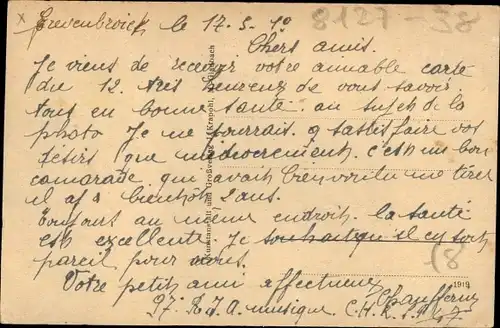 Grevenbroich le 17-5-19
8127-38
Chers amis.
Je viens de recevoir votre aimable carte
du 12. très heureux de vous savoir
tous en bonne santé. au sujet de la
photo Je ne pourrais. satisfaire vos
désirs que médiocrement. c'est un bon
camarade qui avait bien voulu me tirer
il a bientôt 2 ans.
Toujours au même endroit. la santé
est excellente. Je souhaite qu'il en soit
pareil pour vous.
Votre petit ami affectueux
97. R.I.A. musique.
Kunstanstalt und Großverlag Krapohl,
1919
(8